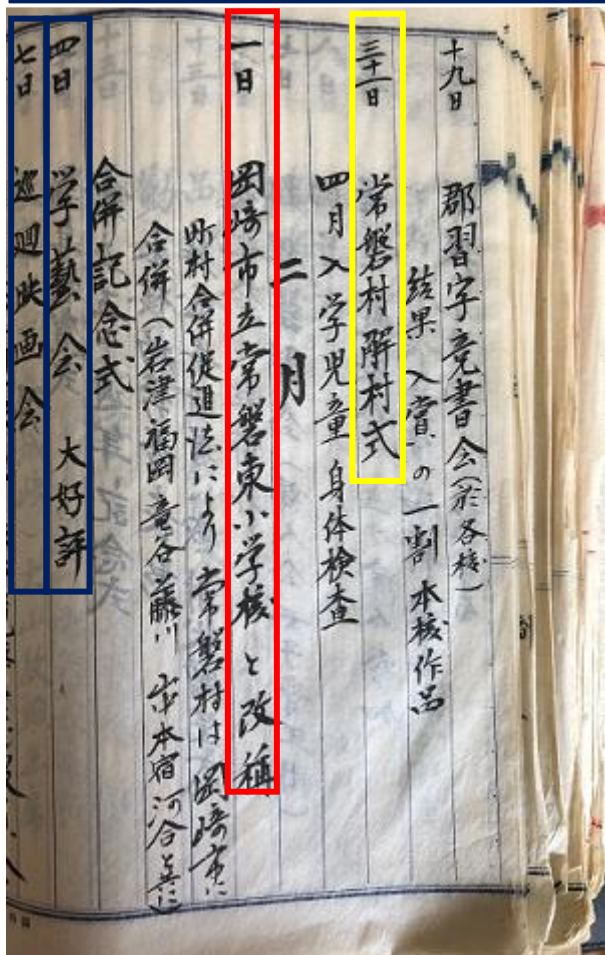 十九日 郡習字竞書会(於各校)
結果 入賞の一割 本校作品
三十一日 常磐村解村式
四月入学児童 身体検査
二月
一日 岡崎市立常磐東小学校と改稱
町村合併促進法により 常磐村は岡崎市に
合併(岩津 福岡 竜谷 藤川 山中 本宿 河合と共に)
合併記念式
四日 学藝会 大好評
七日 巡廻映画会